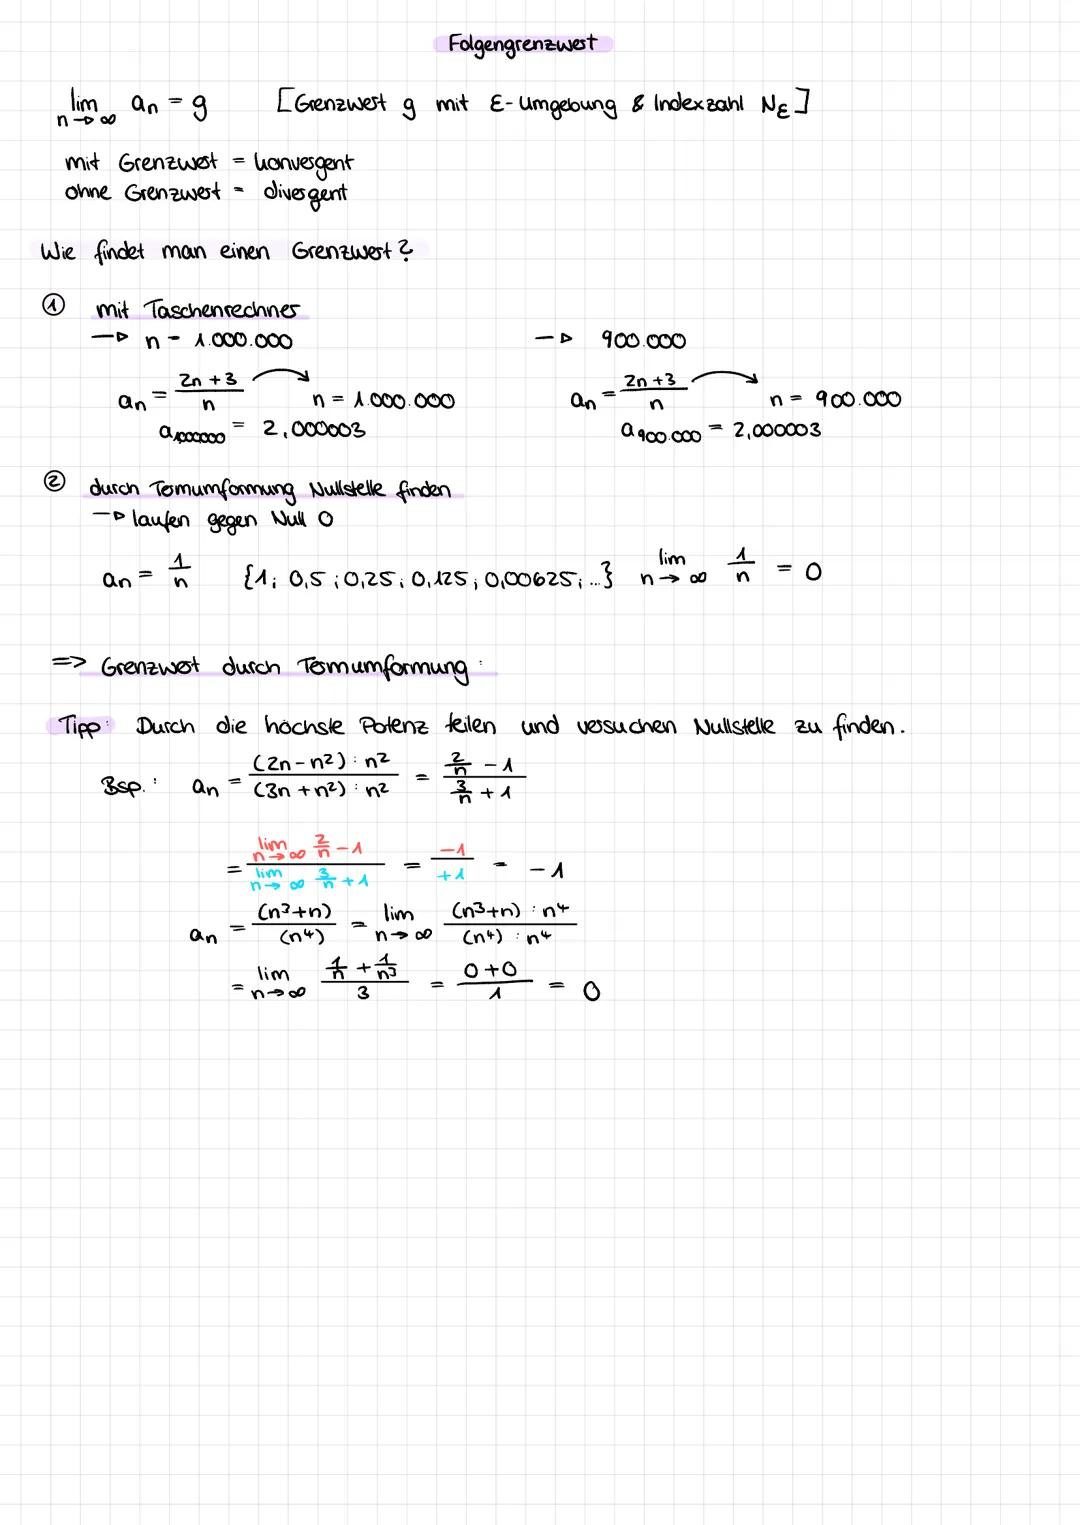 Folgengrenzwert
lim n→∞ an = g [Grenzwert g mit ε-Umgebung & Indexzahl Nε]
mit Grenzwert = konvergent
ohne Grenzwert = divergent
Wie findet man einen Grenzwert?
① mit Taschenrechner
→ n = 1.000.000 → 900.000
an = (2n+3)/n n = 1.000.000 an = (2n+3)/n n = 900.000
a1000000 = 2,000003 a900.000 = 2,000003
② durch Termumformung Nullstelle finden
→ laufen gegen Null 0
an = 1/n {1; 0,5; 0,25; 0,125; 0,00625; ...} lim n→∞ 1/n = 0
=> Grenzwert durch Termumformung:
Tipp: Durch die höchste Potenz teilen und versuchen Nullstelle zu finden.
Bsp.: an = ((2n-n²):n²)/((3n+n²):n²) = (2/n - 1)/(3/n + 1)
= (lim n→∞ 2/n - 1)/(lim n→∞ 3/n + 1) = -1/+1 = -1
an = (n³+n)/(n⁴) = lim n→∞ ((n³+n):n⁴)/((n⁴):n⁴)
= lim n→∞ (1/n + 1/n³)/3 = (0+0)/1 = 0